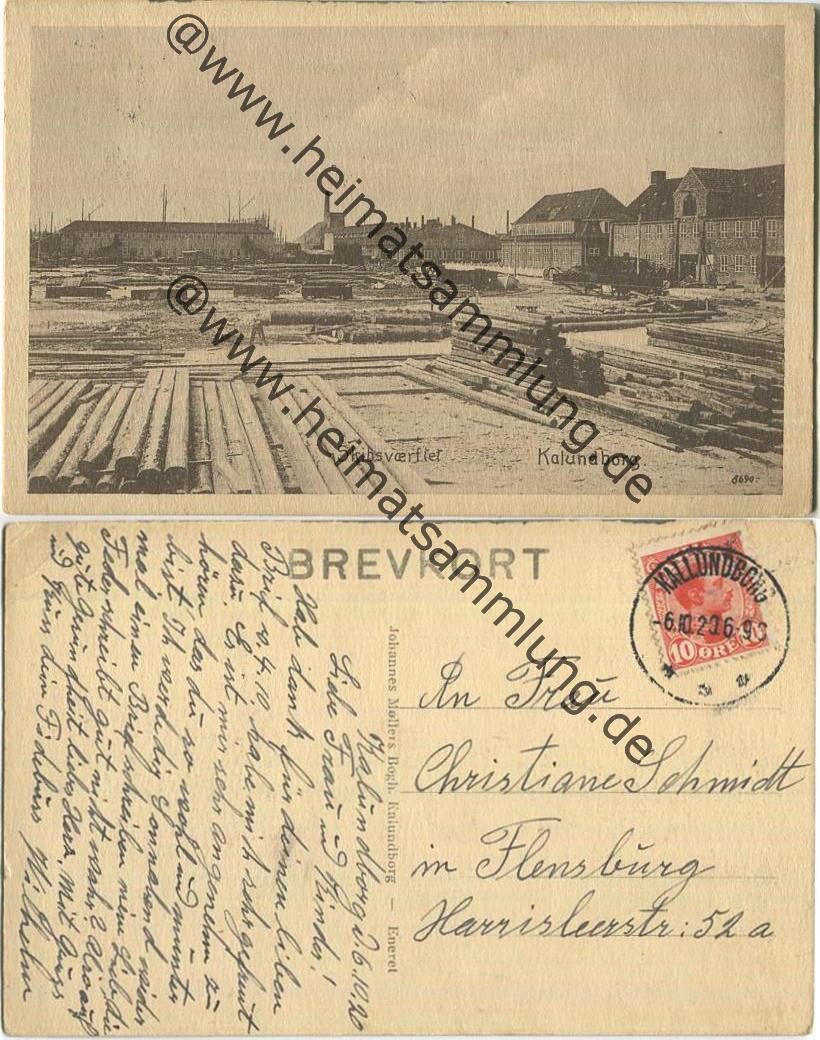 @www.heimatsammlung.de
@www.heimatsammlung.de
Skibsværftet Kalundborg.
8690
BREVKORT
KALLUNDBORG
-6.10.20 6-9
10 ØRE
Johannes Møllers Bogh. Kalundborg — Eneret
An Frau
Christiane Schmidt
in Flensburg
Harrisleerstr: 52 a
Kalundborg d. 6.10.20
Liebe Frau und Kinder!
Hab dank für deinen lieben
Brief v. 4.10 habe mich sehr gefreut
dazu. Es ist mir sehr angenehm zu
hören das du so wohl und munter
bist. Ich werde dig Sonnabend wieder
mal einen Brief schreiben meine Liebe die
Feder schreibt gut nicht wahr? Also auf
gute Gesundheit liebes Herz. Mit Gruss
und Kuss dein Wilhelm